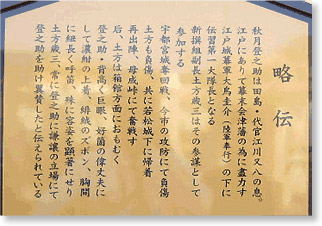 略伝
秋月登之助は田島・代官江川又八の息。
江戸にありて幕末会津藩の為に盡力す
江戸城幕軍大鳥圭介(陸軍奉行)の下に
伝習第一大隊長となる
新撰組副長土方歳三はその参謀として
参加する
宇都宮城奪回戦、今市の攻防にて負傷
土方も負傷、共に若松城下に帰着
再出陣、母成峠にて奮戦す
后、土方は箱館方面におもむく
登之助・背高く巨眼、好箇の偉丈夫に
して濃紺の上着、緋絨のズボン、胸間
に継長く呼笛、殊に容姿を顕著にせり
土方歳三常に登之助に謙譲の立場にて
登之助を助け翼賛したと伝えられている